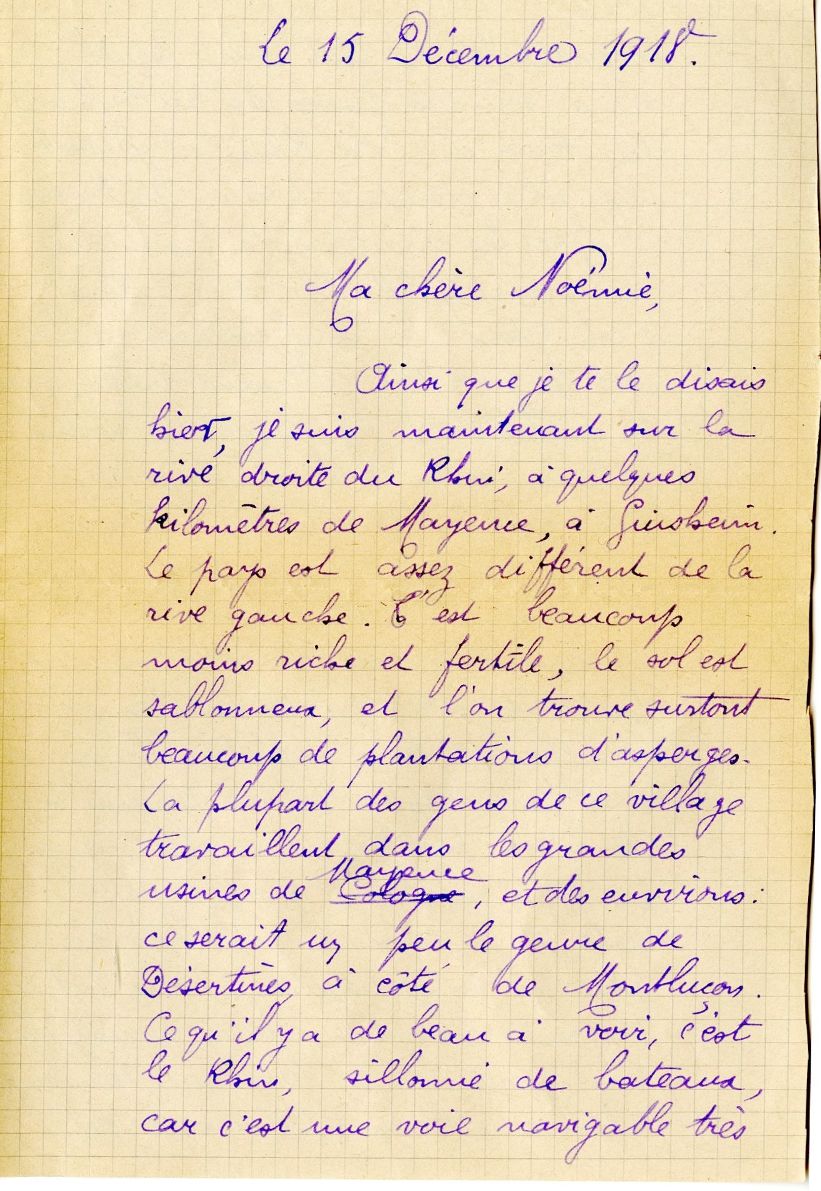 Le 15 Décembre 1918.
Ma chère Noémie,
Ainsi que je te le disais
hier, je suis maintenant sur la
rive droite du Rhin, à quelques
kilomètres de Mayence, à Ginsheim.
Le pays est assez différent de la
rive gauche. C'est beaucoup
moins riche et fertile, le sol est
sablonneux, et l'on trouve surtout
beaucoup de plantations d'asperges.
La plupart des gens de ce village
travaillent dans les grandes
usines de ~~Cologne~~ Mayence, et des environs :
ce serait un peu le genre de
Désertines à côté de Montluçon.
Ce qu'il y a de beau à voir, c'est
le Rhin, sillonné de bateaux,
car c'est une voie navigable très